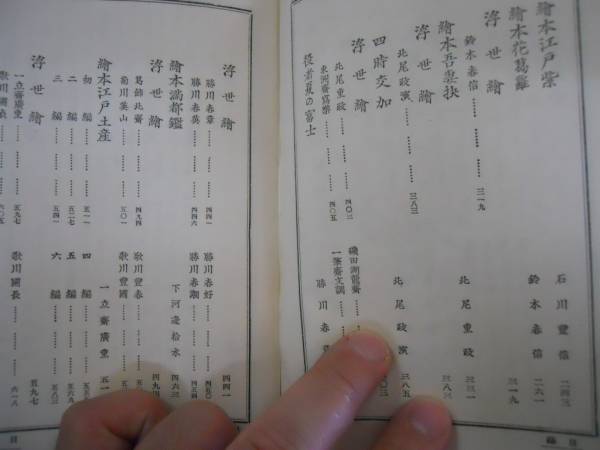 繪本江戸紫 石川豐信 二四三
繪本花葛羅 鈴木春信 二六一
浮世繪
鈴木春信……三一九 三一九
繪本吾妻抉 北尾重政 三二一
浮世繪 三八三
北尾政演……三八三
四時交加 北尾政演 三八五
浮世繪
北尾重政……四〇三 磯田湖龍齋
東洲齋寫樂……四〇五 一筆齋文調
役者夏の富士 勝川春章
浮世繪 四四一
勝川春章……四四一 勝川春好
勝川春英……四四六 勝川春潮
繪本滿都鑑 下河邊拾水 四六三
浮世繪
葛飾北齋……四九四 歌川豐春
菊川英山……五〇一 歌川豐國
繪本江戸土産 一立齋廣重
初編……五一一 四編
二編……五二七 五編
三編……五四一 六編
浮世繪 五九七
一立齋廣重……五九七 歌川國長……六一八
歌川國貞……六〇五
目